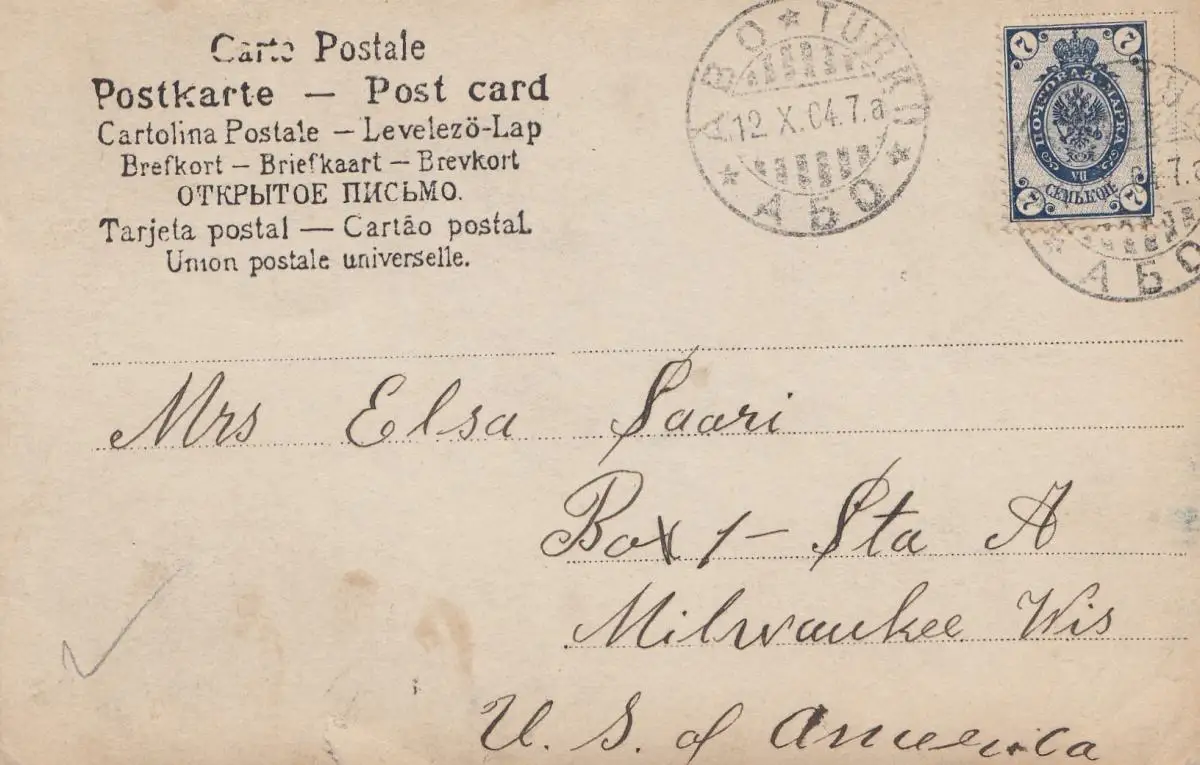 Carte Postale
Postkarte — Post card
Cartolina Postale — Levelező-Lap
Brefkort — Briefkaart — Brevkort
ОТКРЫТОЕ ПИСЬМО.
Tarjeta postal — Cartão postal
Union postale universelle.
ÅBO ★ TURKU ★
12.X.04.7.a
АБО
7 7
ПОЧТОВАЯ МАРКА
СЕМЬ КОП.
7 7
7.a
АБО
Mrs Elsa Saari
Box 1 – Sta A
Milwaukee Wis
U. S. of America